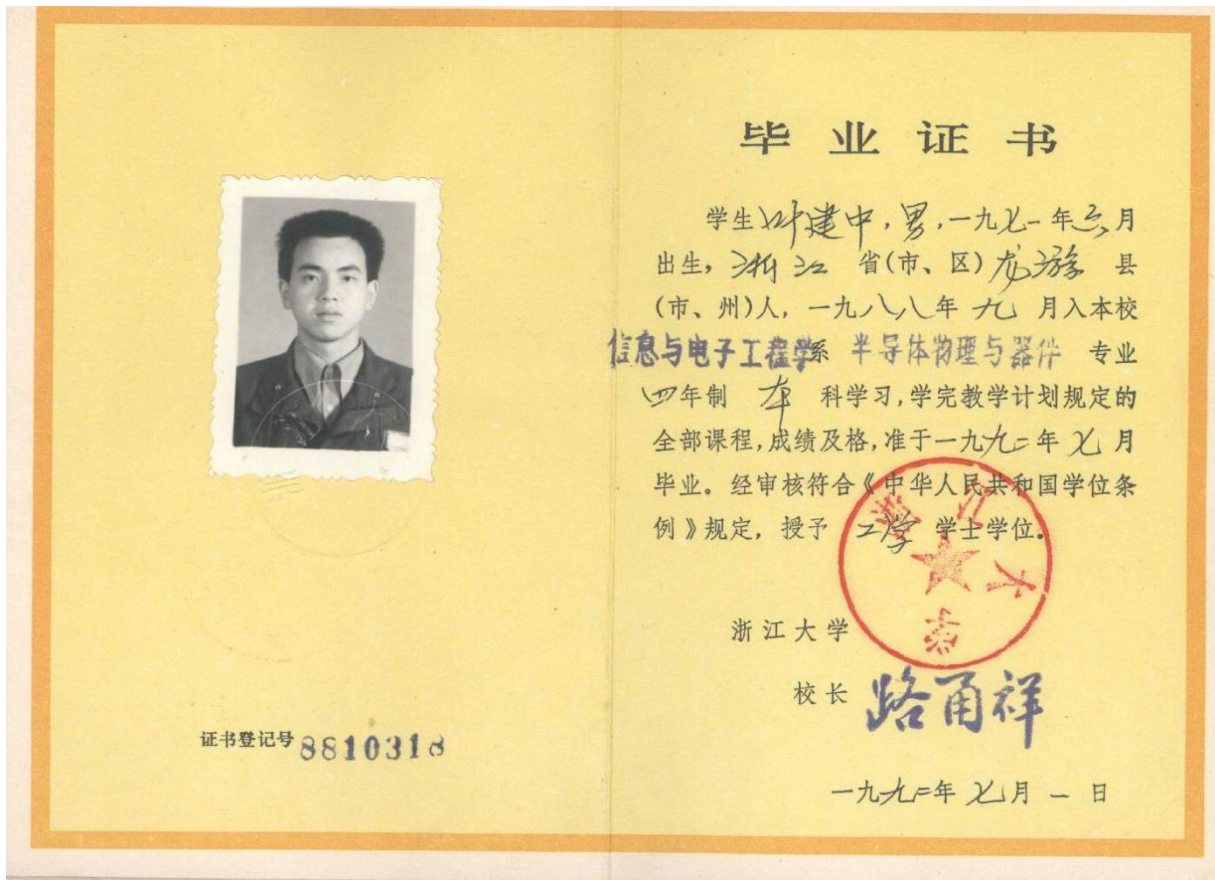 证书登记号 8810318
毕业证书
学生叶建中,男,一九七一年六月
出生,浙江 省(市、区)龙游 县
(市、州)人,一九八八年 九 月入本校
信息与电子工程学系 半导体物理与器件 专业
四年制 本 科学习,学完教学计划规定的
全部课程,成绩及格,准于一九九二年 七 月
毕业。经审核符合《中华人民共和国学位条
例》规定,授予 工学 学士学位。
浙江大学
浙江大学
校长 路甬祥
一九九二年 七月 一 日